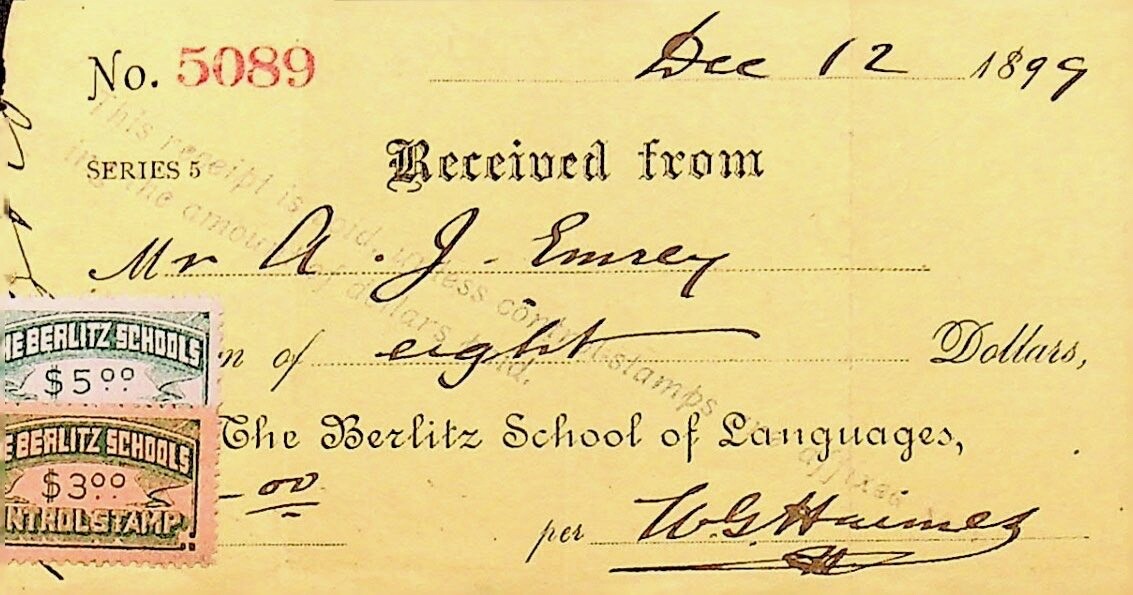 No. 5089
Dec 12 1899
SERIES 5
Received from
This receipt is void, unless control-stamps
the amount of dollars paid.
Mr A. J. Emrey
n of eight Dollars,
The Berlitz School of Languages,
00
per W. G.
E BERLITZ SCHOOLS
$5.00
E BERLITZ SCHOOLS
$3.00
NTROL STAMP